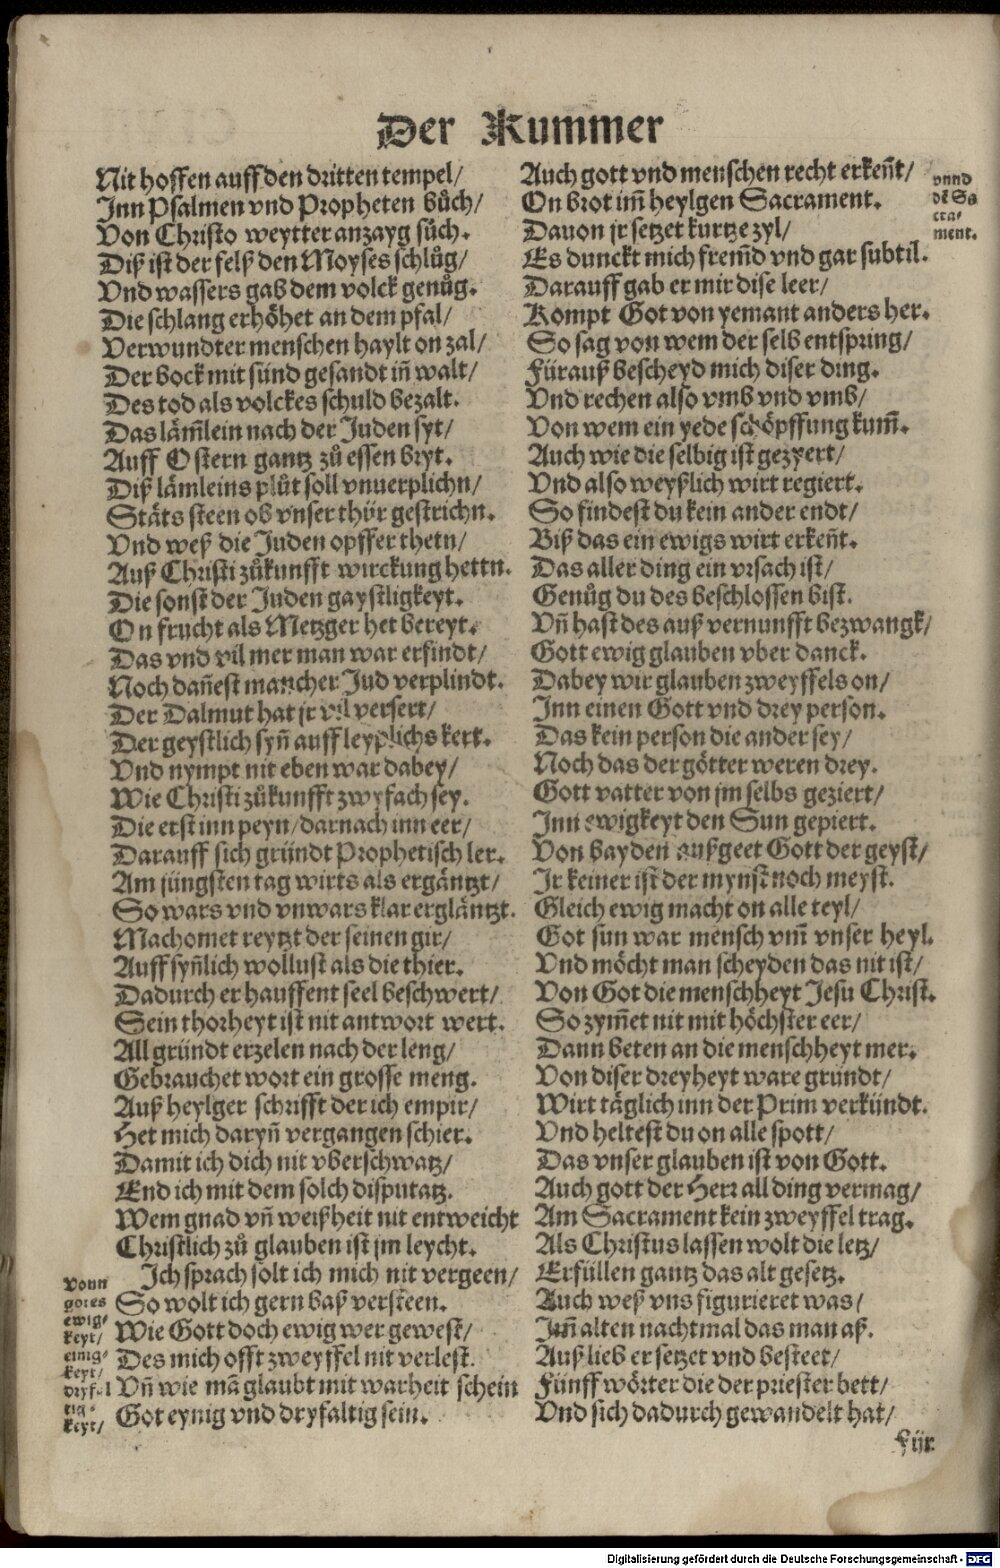 Der Kummer
Nit hoffen auff den dritten tempel/
Inn Psalmen vnd Propheten bůch/
Von Christo weytter anzayg sůch.
Diß ist der felß den Moyses schlůg/
Vnd wassers gab dem volck genůg.
Die schlang erhöhet an dem pfal/
Verwundter menschen haylt on zal/
Der bock mit sünd gesandt iñ walt/
Des tod als volckes schuld bezalt.
Das lām̃lein nach der Juden syt/
Auff Ostern gantz zů essen bryt.
Diß lämleins plůt soll vnuerplichn/
Stäts steen ob vnser thür gestrichn.
Vnd weß die Juden opffer thetn/
Auß Christi zůkunfft wirckung hettn.
Die sonst der Juden gaystligkeyt.
On frucht als Metzger het bereyt.
Das vnd vil mer man war erfindt/
Noch dañest mancher Jud verplindt.
Der Dalmut hat jr vil versert/
Der geystlich syñ auff leyplichs kert.
Vnd nympt nit eben war dabey/
Wie Christi zůkunfft zwyfach sey.
Die erst inn peyn/darnach inn eer/
Darauff sich gründt Prophetisch ler.
Am jüngsten tag wirts als ergäntzt/
So wars vnd vnwars klar ergläntzt.
Machomet reytzt der seinen gir/
Auff syñlich wollust als die thier.
Dadurch er hauffent seel beschwert/
Sein thorheyt ist nit antwort wert.
All gründt erzelen nach der leng/
Gebrauchet wort ein grosse meng.
Auß heylger schrifft der ich empir/
Het mich daryñ vergangen schier.
Damit ich dich nit vberschwatz/
End ich mit dem solch disputatz.
Wem gnad vñ weißheit nit entweicht
Christlich zů glauben ist jm leycht.
Ich sprach solt ich mich nit vergeen/
So wolt ich gern baß versteen.
Wie Gott doch ewig wer gewest/
Des mich offt zweyffel nit verlest.
Vñ wie mā glaubt mit warheit schein
Got eynig vnd dryfaltig sein.
Vonn
gotes
ewig-
keyt/
einig-
keyt/
dryfal
tig-
keyt/
Auch gott vnd menschen recht erkeñt/
On brot im̃ heylgen Sacrament.
Dauon jr setzet kurtze zyl/
Es dunckt mich frem̃d vnd gar subtil.
Darauff gab er mir dise leer/
Kompt Got von yemant anders her.
So sag von wem der selb entspring/
Fürauß bescheyd mich diser ding.
Vnd rechen also vmb vnd vmb/
Von wem ein yede schöpffung kum̃.
Auch wie die selbig ist gezyert/
Vnd also weyßlich wirt regiert.
So findest du kein ander endt/
Biß das ein ewigs wirt erkeñt.
Das aller ding ein vrsach ist/
Genůg du des beschlossen bist.
Vñ hast des auß vernunfft bezwangk/
Gott ewig glauben vber danck.
Dabey wir glauben zweyffels on/
Inn einen Gott vnd drey person.
Das kein person die ander sey/
Noch das der götter weren drey.
Gott vatter von jm selbs geziert/
Inn ewigkeyt den Sun gepiert.
Von bayden außgeet Gott der geyst/
Ir keiner ist der mynst noch meyst.
Gleich ewig macht on alle teyl/
Got sun war mensch vm̃ vnser heyl.
Vnd möcht man scheyden das nit ist/
Von Got die menschheyt Jesu Christ.
So zym̃et nit mit höchster eer/
Dann beten an die menschheyt mer.
Von diser dreyheyt ware gründt/
Wirt täglich inn der Prim verkündt.
Vnd heltest du on alle spott/
Das vnser glauben ist von Gott.
Auch gott der Herr all ding vermag/
Am Sacrament kein zweyffel trag.
Als Christus lassen wolt die letz/
Erfüllen gantz das alt gesetz.
Auch weß vns figurieret was/
Im̃ alten nachtmal das man aß.
Auß lieb er setzet vnd besteet/
Fünff wörter die der priester bett/
Vnd sich dadurch gewandelt hat/
vnnd
dē Sa
cra-
ment.
Für
Digitalisierung gefördert durch die Deutsche Forschungsgemeinschaft - DFG